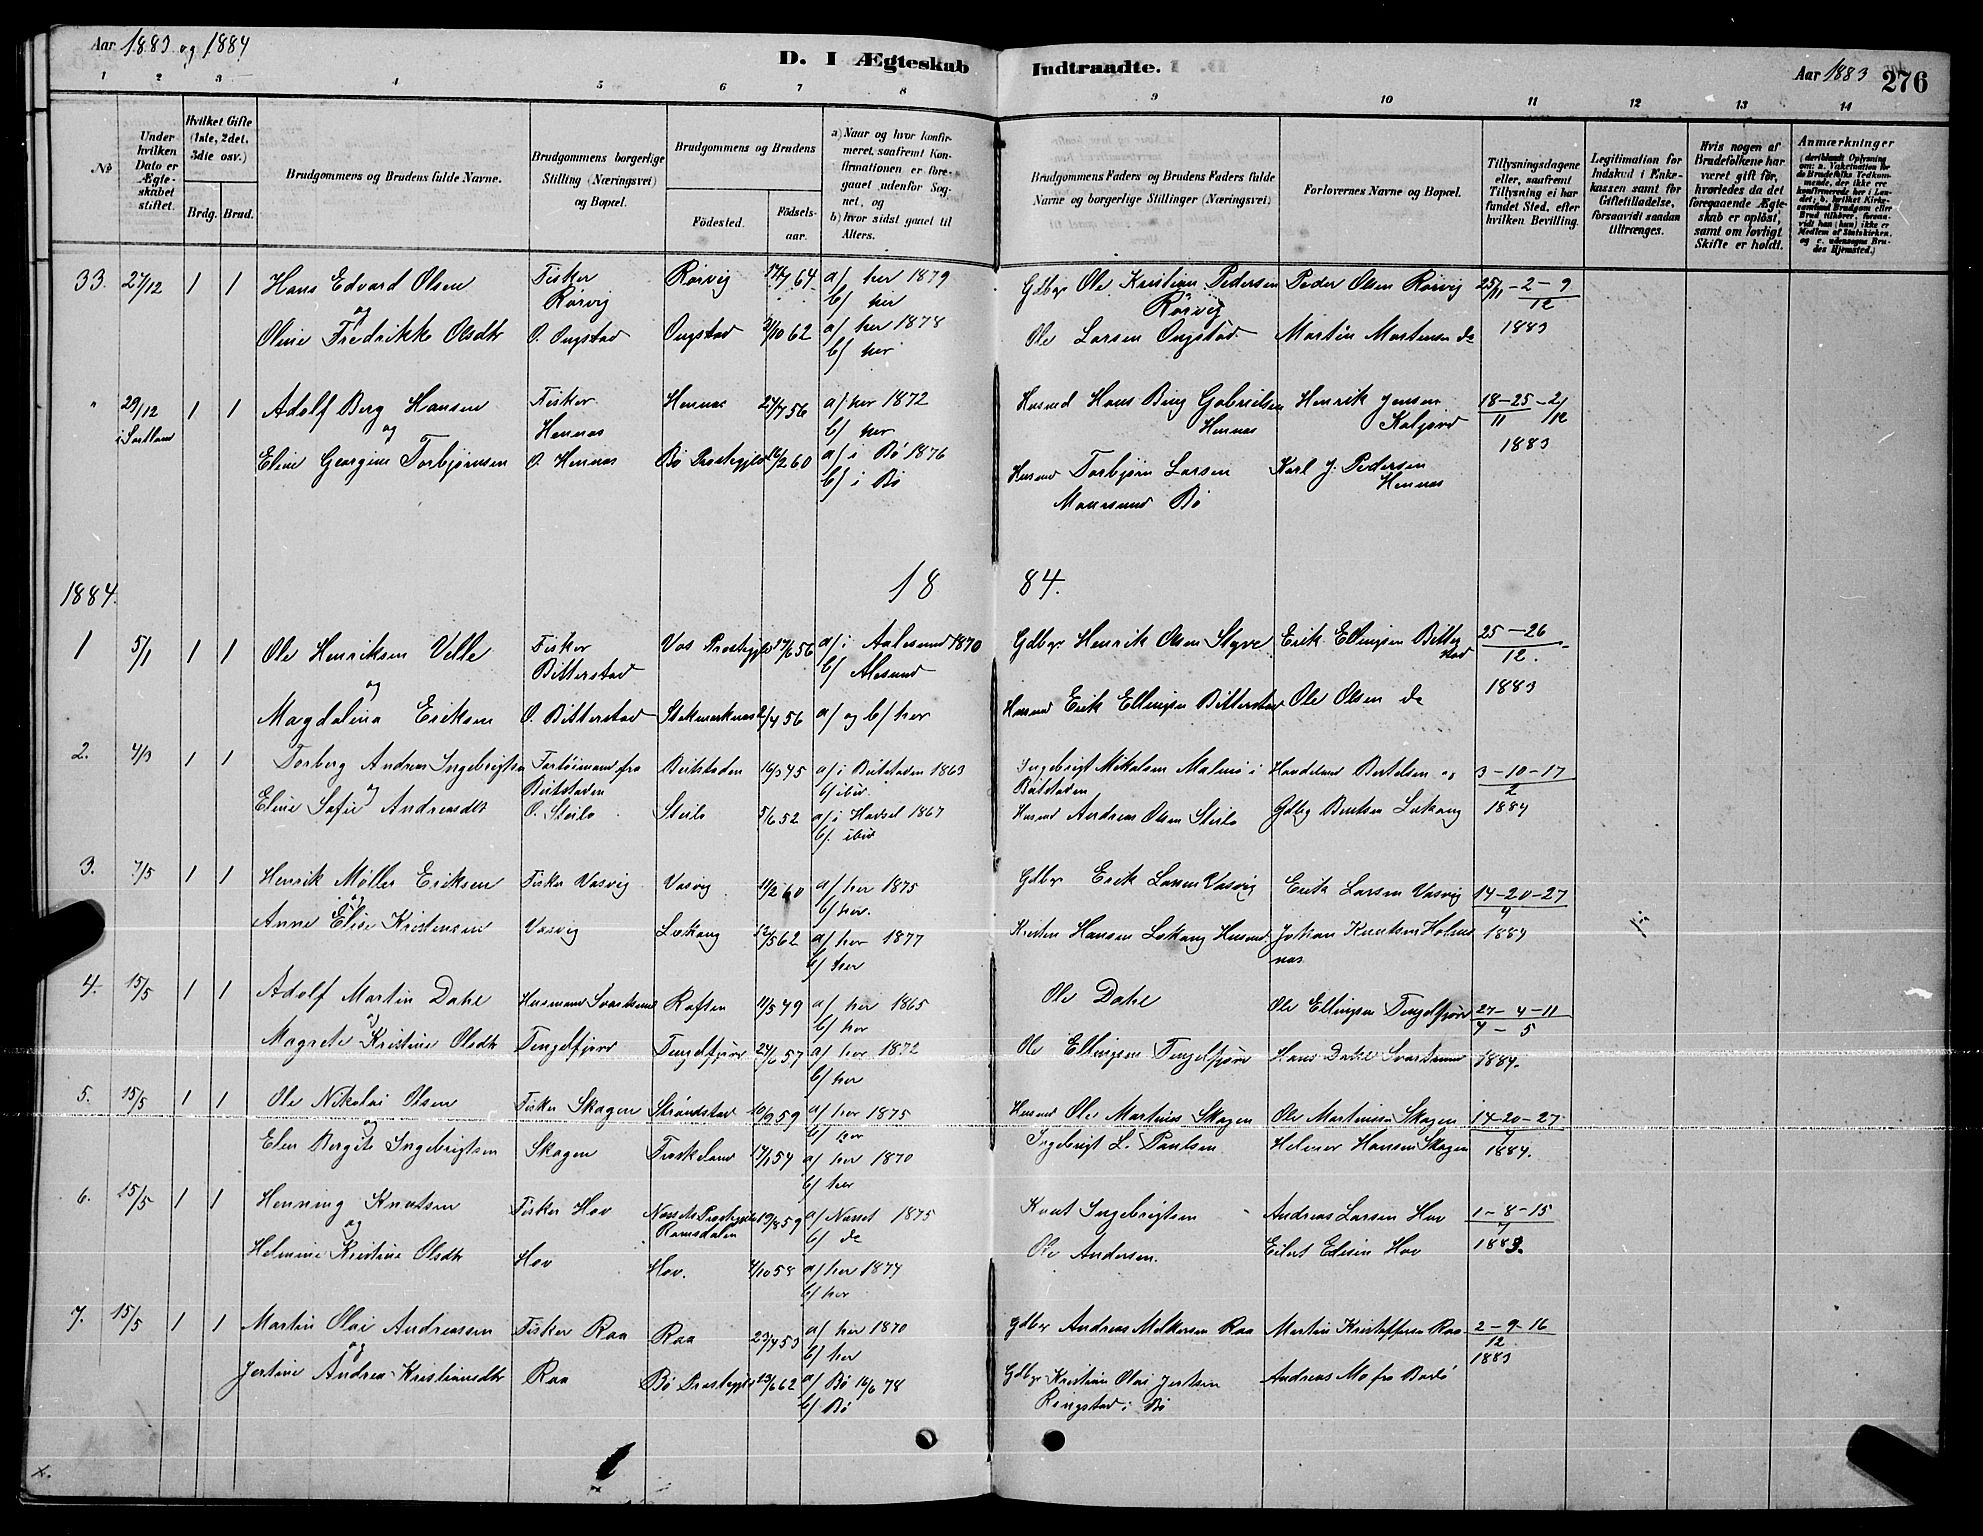 Aar 1883 og 1884
D. I Ægteskab Indtraadte.
Aar 1883 276
1 2 3 4 5 6 7 8 9 10 11 12 13 14
No
Under hvilken Dato er Ægteskabet stiftet.
Hvilket Gifte (1ste, 2det, 3die osv.)
Brdg. Brud.
Brudgommens og Brudens fulde Navne.
Brudgommens borgerlige Stilling (Næringsvei) og Bopæl.
Brudgommens og Brudens
Födested.
Födsels-aar.
a) Naar og hvor konfirmeret, saafremt Konfirmationen er foregaaet udenfor Sognet, og
b) hvor sidst gaaet til Alters.
Brudgommens Faders og Brudens Faders fulde Navne og borgerlige Stillinger (Næringsvei)
Forlovernes Navne og Bopæl.
Tillysningsdagene eller, saafremt Tillysning ei har fundet Sted, efter hvilken Bevilling.
Legitimation for Indskud i Enkekassen samt for Giftetilladelse, forsaavidt saadan tiltrænges.
Hvis nogen af Brudefolkene har været gift før, hvorledes da det foregaaende Ægteskab er oplöst, samt om lovligt Skifte er holdt.
Anmærkninger
33. 27/12 1 1 Hans Edvard Olsen Fisker Rørvig Rørvig 17/7 64 a/ her 1879 b/ her Gdbgr Ole Kristian Pedersen Rørvig Peder Olsen Rørvig 25/11 - 2 - 9 12 1883
og
Oline Fredrikke Olsdtr O. Ongstad Ongstad 2/10 62 a/ her 1878 b/ her Ole Larsen Ongstad Martin Mortensen do
" 29/12 i Sortland 1 1 Adolf Berg Hansen Fisker Hennes Hennes 27/7 56 a/ her 1872 b/ her Husmd Hans Berg Gabrielsen Hennes Henrik Jensen Kaljord 18-25-2/12 11 1883
og
Eline Georgine Torbjørnsen O. Hennes Bø Prestegjeld 12/2 60 a/ i Bø 1876 b/ i Bø Husmd Torbjørn Larsen Maursund Bø Karl J. Pedersen Hennes
1884. 18 84.
1 5/1 1 1 Ole Henriksen Velle Fisker Bitterstad Vos Prestegjeld 17/6 56 a/ i Aalesund 1870 b/ Alesund Gdbgr Henrik Olsen Styve Erik Ellingsen Bitterstad 25-26 12. 1883
og
Magdalina Eriksen O. Bitterstad Stokmarknes 2/4 56 a/ og b/ her Husmd Erik Ellingsen Bitterstad Ole Olsen do
2. 4/3 1 1 Torberg Andreas Ingebrigtsen Fartøimand fra Beitstaden Beitstaden 16/3 45 a/ i Beitstaden 1863 b/ ibid. Ingebrigt Mikalsen Malmø i Beitstaden Bertelsen og 3-10-17 2 1884
og
Eline Sofie Andreasdtr O. Steilo Steilo 5/6 52 a/ i Hadsel 1867 b/ ibid Husmd Andreas Olsen Steilo Gdbg Bentsen Lekang
3. 7/5 1 1 Henrik Møller Eriksen Fisker Vasvig Vasvig 11/2 60 a/ her 1875 b/ her. Gdbgr Erik Larsen Vasvig Erik Larsen Vasvig 14-20-27 4 1884
og
Anne Elise Kristensen Vasvig Lekang 12/5 62 a/ her 1877 b/ her Kristen Hansen Lekang Husmd Johan Knutsen Holmsnes
4. 15/5 1 1 Adolf Martin Dahl Husmand Svartsund Raften 11/3 49 a/ her 1865 b/ her Ole Dahl Ole Ellingsen Tengelfjord 27-4-11 4-5 1884.
og
Magrete Kristine Olsdtr Tengelfjord Tengelfjord 24/6 57 a/ her 1872 b/ her Ole Ellingsen Tengelfjord Hans Dahl Svartsund
5. 15/5 1 1 Ole Nikolai Olsen Fisker Skagen Strøndstad 10/9 59 a/ her 1875 b/ her Husmd Ole Martinus Skagen Ole Martinus Skagen 14-20-27 4 1884.
og
Elen Bergite Ingebrigtsen Skagen Fiskeland 17/1 54 a/ her 1870 b/ her Ingebrigt L. Paulsen Helmer Hansen Skagen
6. 15/5 1 1 Henning Knutsen Fisker Hov Nessets Prestegjeld Romsdalen 19/8 59 a/ Nesset 1875 b/ do Knut Ingebrigtsen Andreas Larsen Hov 1-8-15 7 1883.
og
Helmine Kristine Olsdtr Hov Hov. 4/10 58 a/ her 1874 b/ her Ole Andersen. Eilert Elisen Hov
7. 15/5 1 1 Martin Olai Andreassen Fisker Raa Raa 23/4 53 a/ her 1870 b/ her Gdbgr Andreas Melkersen Raa Martin Kristoffersen Raa 2-9-16 12 1883
og
Jertine Andrea Kristiansdtr Raa Bø Prestegjeld 29/6 62 a/ Bø 16/6 78 b/ Bø Gdbgr Kristian Olai Jertsen Ringstad i Bø Andreas Mo fra Bodø
x.